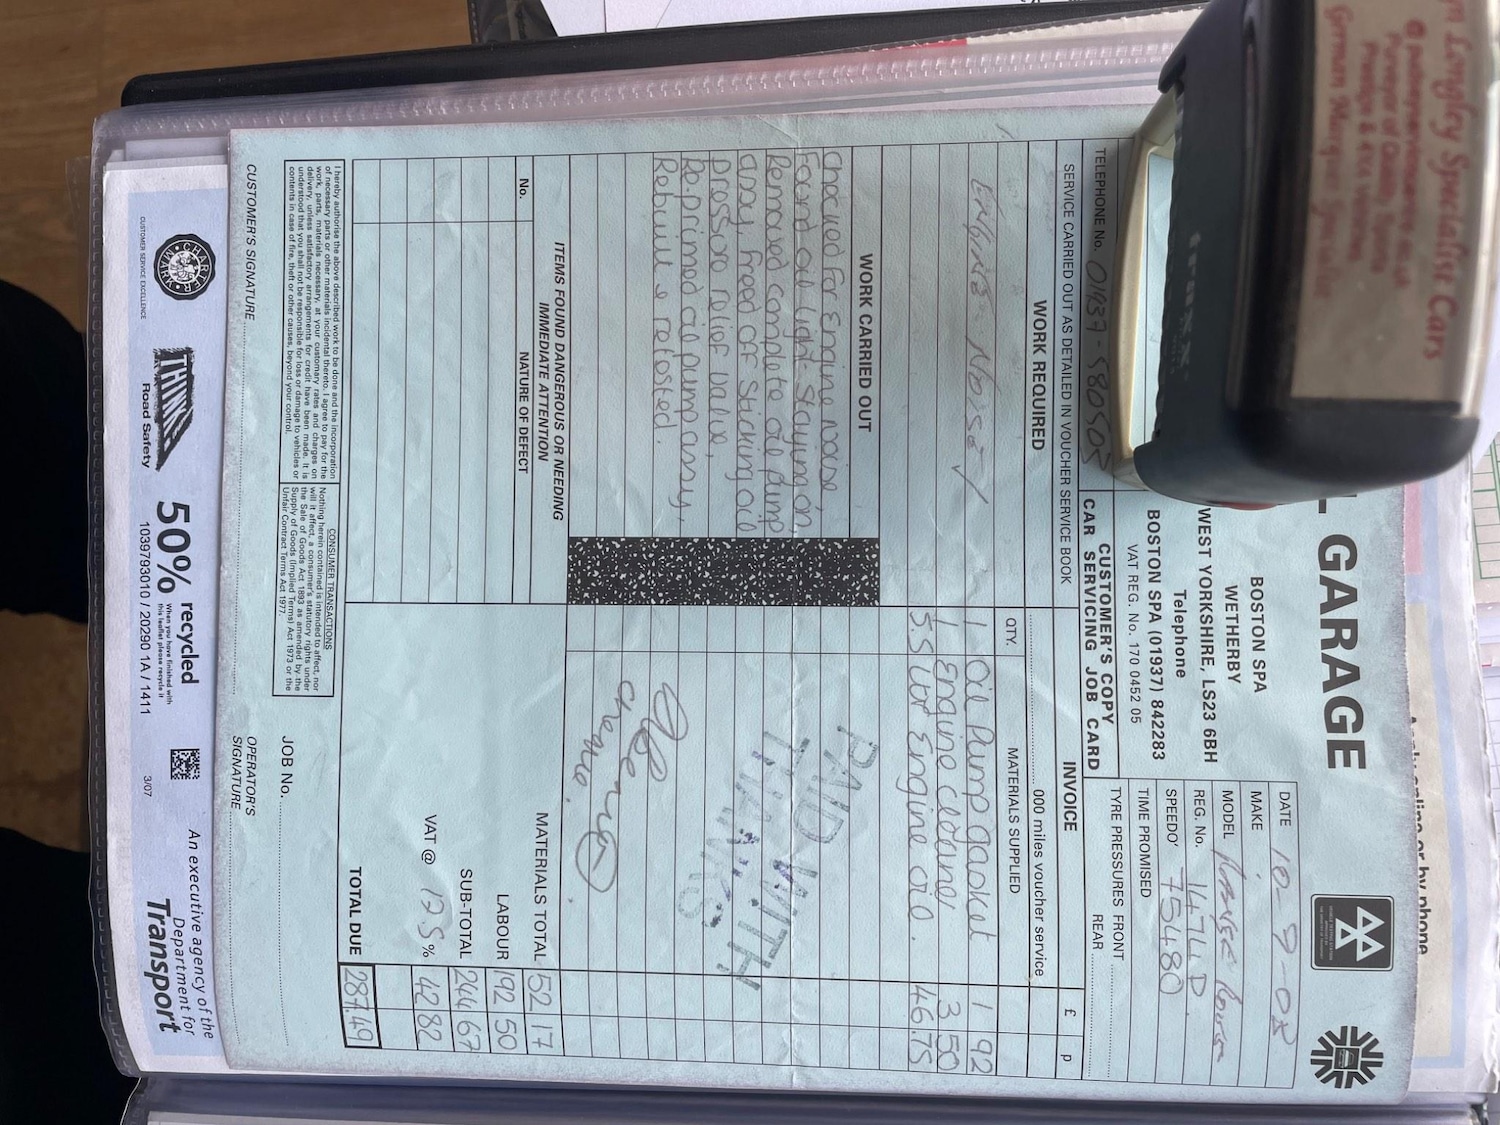 L GARAGE
BOSTON SPA
WETHERBY
WEST YORKSHIRE, LS23 6BH
Telephone
BOSTON SPA (01937) 842283
VAT REG. No. 170 0452 05
AA
TELEPHONE No. 01937-580505
CUSTOMER'S COPY
CAR SERVICING JOB CARD
DATE 10-9-08
MAKE
MODEL Range Rover
REG. No. 147 LLD
SPEEDO' 75480
TIME PROMISED
TYRE PRESSURES FRONT
REAR
SERVICE CARRIED OUT AS DETAILED IN VOUCHER SERVICE BOOK
INVOICE
£ p
WORK REQUIRED
000 miles voucher service
QTY. MATERIALS SUPPLIED
ENGINE NOISE
1 Oil Pump gasket 1 92
1 Engine cleaner 3 50
5.5 Ltr Engine oil. 46.75
WORK CARRIED OUT
Checked for engine noise,
Found oil light staying on
Removed complete oil pump
assy, freed off sticking oil
pressure relief valve,
Re-primed oil pump assy,
Rebuilt & retested.
PAID WITH
THANKS
cheque.
ITEMS FOUND DANGEROUS OR NEEDING
IMMEDIATE ATTENTION
No. NATURE OF DEFECT
MATERIALS TOTAL 52 17
LABOUR 192 50
SUB-TOTAL 244 67
VAT @ 17.5% 42 82
TOTAL DUE 287.49
I hereby authorise the above described work to be done and the incorporation
of necessary parts or other materials incidental thereto. I agree to pay for the
work, parts, materials necessary, at your customary rates and charges on
delivery, unless satisfactory arrangements for credit have been made. It is
understood that you shall not be responsible for loss or damage to vehicles or
contents in case of fire, theft or other causes, beyond your control.
CONSUMER TRANSACTIONS
Nothing herein contained is intended to affect, nor
will it affect, a consumer's statutory rights under
the Sale of Goods Act 1893 as amended by the
Supply of Goods (Implied Terms) Act 1973 or the
Unfair Contract Terms Act 1977.
JOB No.
CUSTOMER'S SIGNATURE
OPERATOR'S
SIGNATURE
CHARTER MARK
CUSTOMER SERVICE EXCELLENCE
THINK!
Road Safety
50% recycled
When you have finished with
this leaflet please recycle it
1039793010 / 20290 1A / 1411
3/07
An executive agency of the
Department for
Transport
Longley Specialist Cars
Purveyor of Quality, Sports
Prestige & 4X4 Vehicles
or by phone